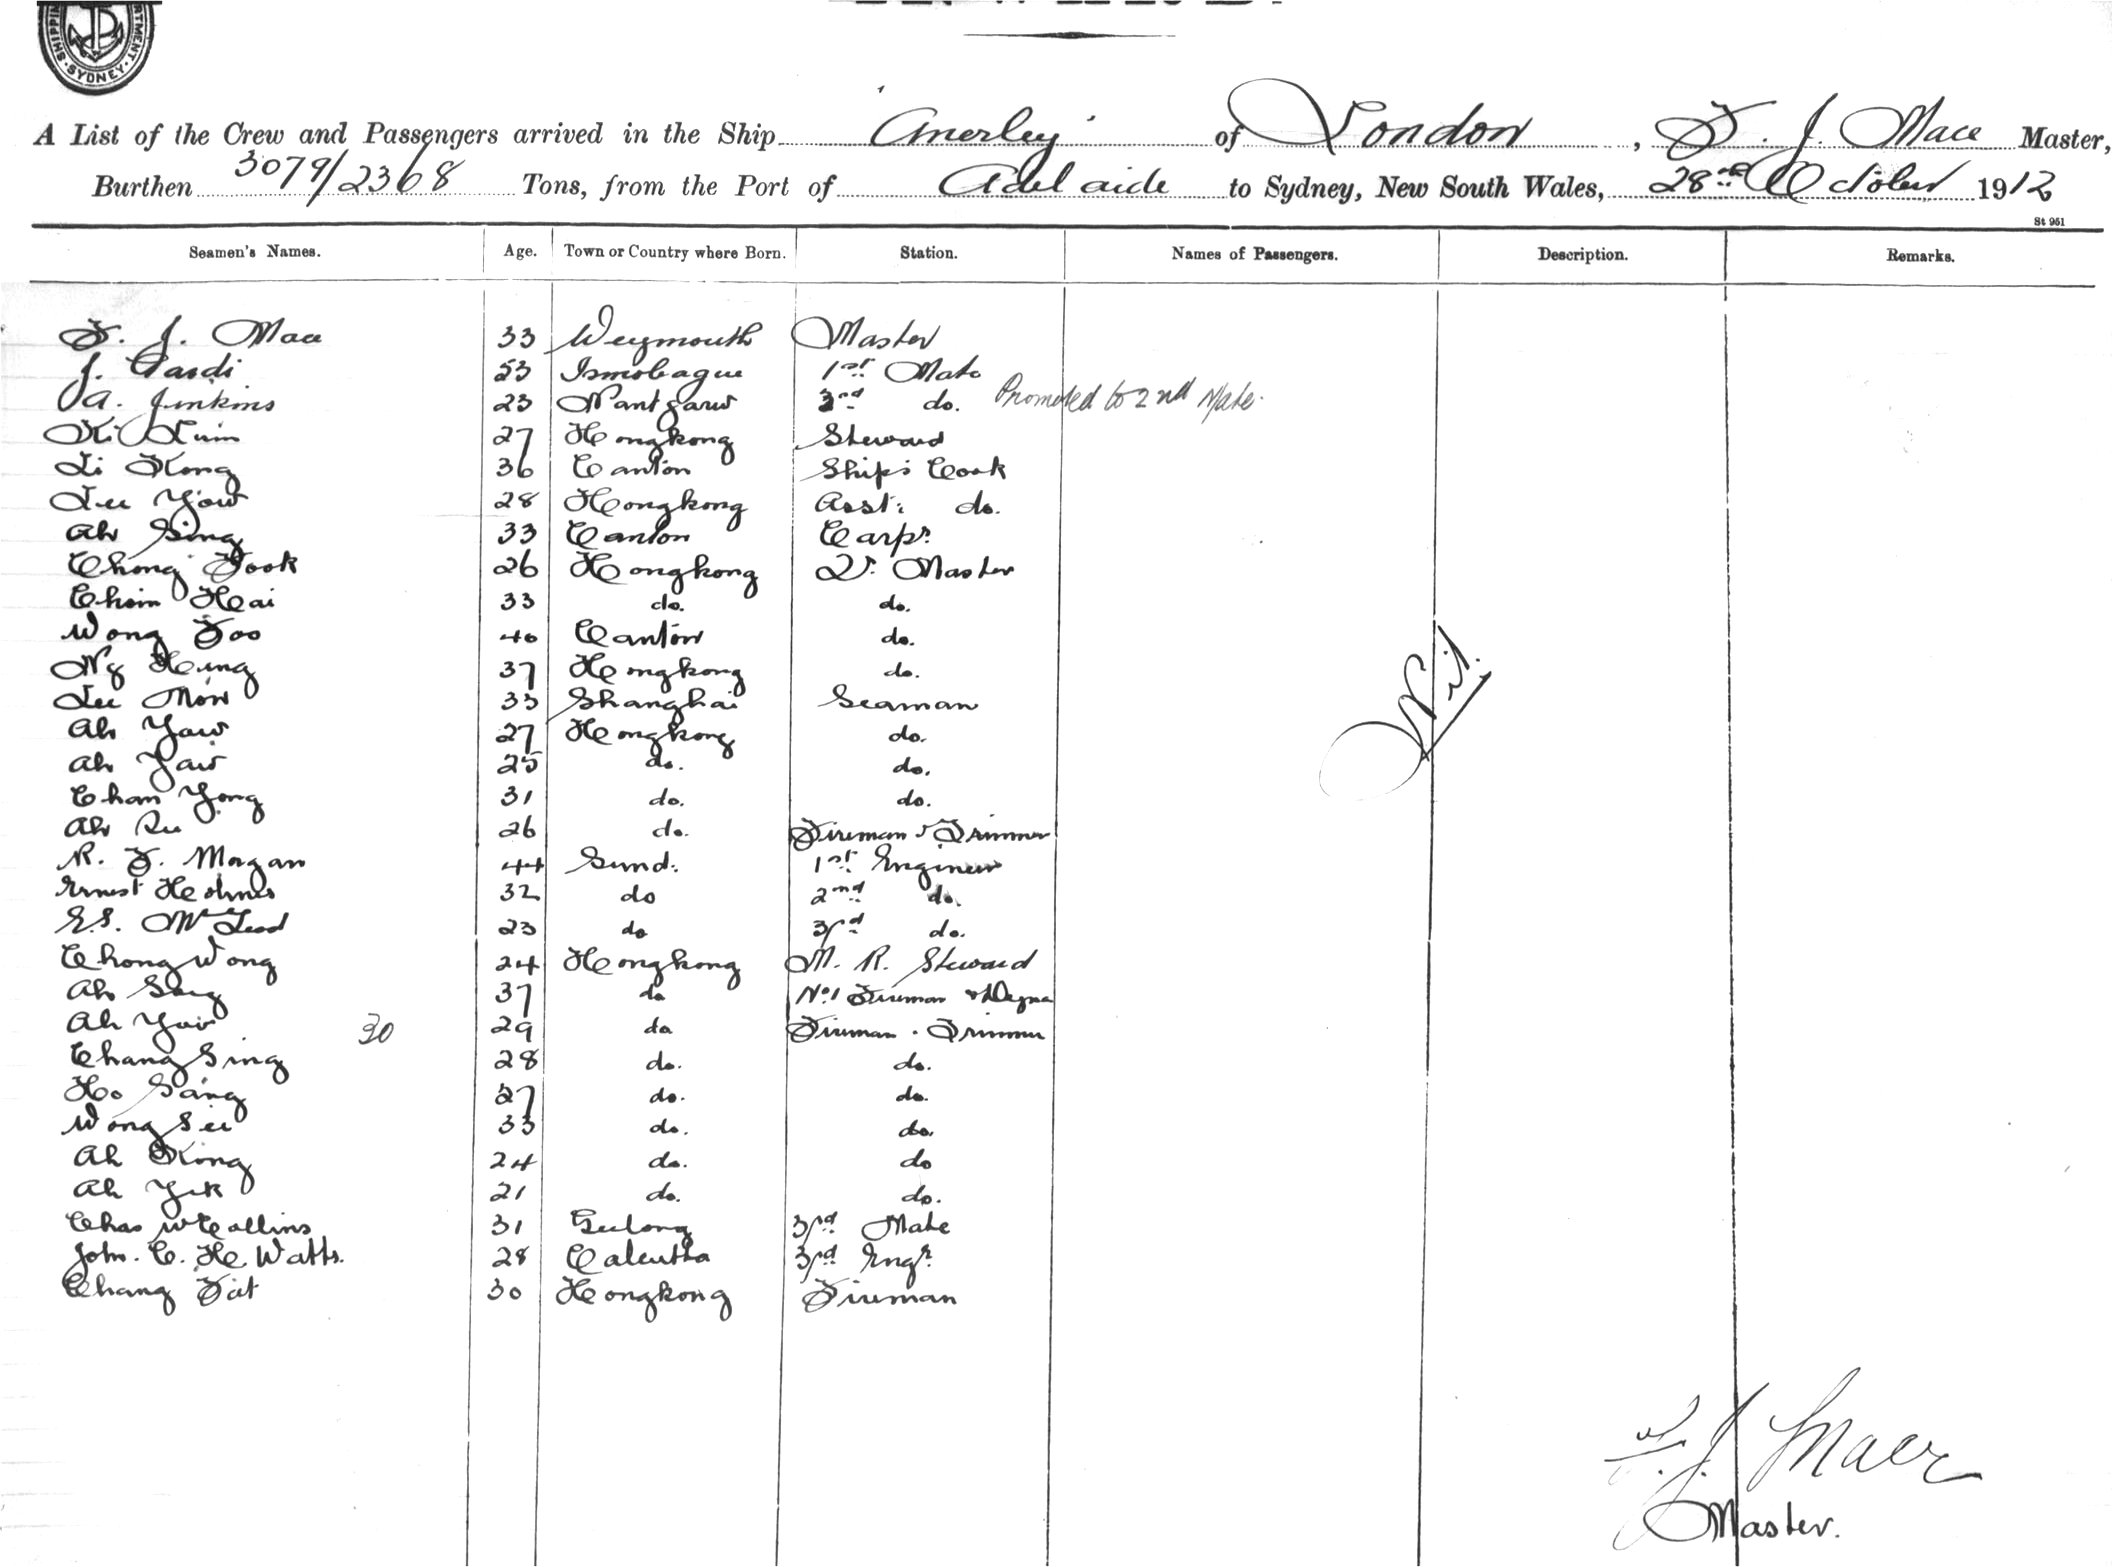 SYDNEY
A List of the Crew and Passengers arrived in the Ship "Anerley" of London, F. J. Mace Master,
Burthen 3079/2368 Tons, from the Port of Adelaide to Sydney, New South Wales, 28th October 1912
St 951
Seamen's Names. Age. Town or Country where Born. Station. Names of Passengers. Description. Remarks.
F. J. Mace 33 Weymouth Master
J. Pardi 53 1st Mate
A. Jenkins 23 Nantgarw 2nd do. Promoted to 2nd Mate.
27 Hongkong Steward
Li Kong 36 Canton Ship's Cook
Lee Yow 28 Hongkong Asst: do.
Ah Sing 33 Canton Carpr.
Chong Fook 26 Hongkong Qr. Master
Choin Hai 33 do. do.
Wong Foo 40 Canton do.
Ng Hung 37 Hongkong do.
Lee Mow 33 Shanghai Seaman
Ah Yaw 27 Hongkong do.
Ah Yaw 25 do. do.
Chan Yong 31 do. do.
Ah 26 do. Fireman & Trimmer
R. F. Morgan 44 Sund. 1st Engineer
Ernest Holmes 32 do 2nd do.
E.S. McLeod 23 do 3rd do.
Chong Wong 24 Hongkong M. R. Steward
Ah Sang 37 do No 1 Fireman
Ah Yow 30 29 do Fireman . Trimmer
Chang Sing 28 do. do.
Ho Sang 27 do. do.
Wong See 33 do. do.
Ah Kong 24 do. do
Ah Yek 21 do. do.
Chas W Collins 31 Geelong 3rd Mate
John. C. H. Watts. 28 Calcutta 3rd Engr.
Chang Fat 30 Hongkong Fireman
Nil.
F. J. Mace
Master.